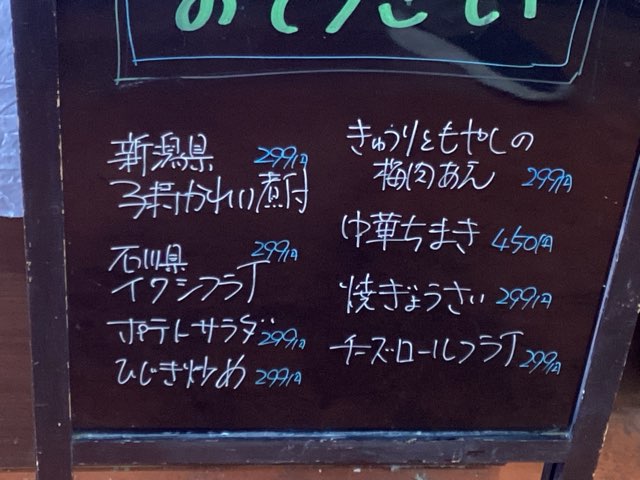 おてうこせい
新潟県 299円
子持かれい煮付
石川県 299円
イワシフライ
ポテトサラダ 299円
ひじき炒め 299円
きゅうりともやしの
梅肉あえ 299円
中華ちまき 450円
焼ぎょうざい 299円
チーズロールフライ 299円